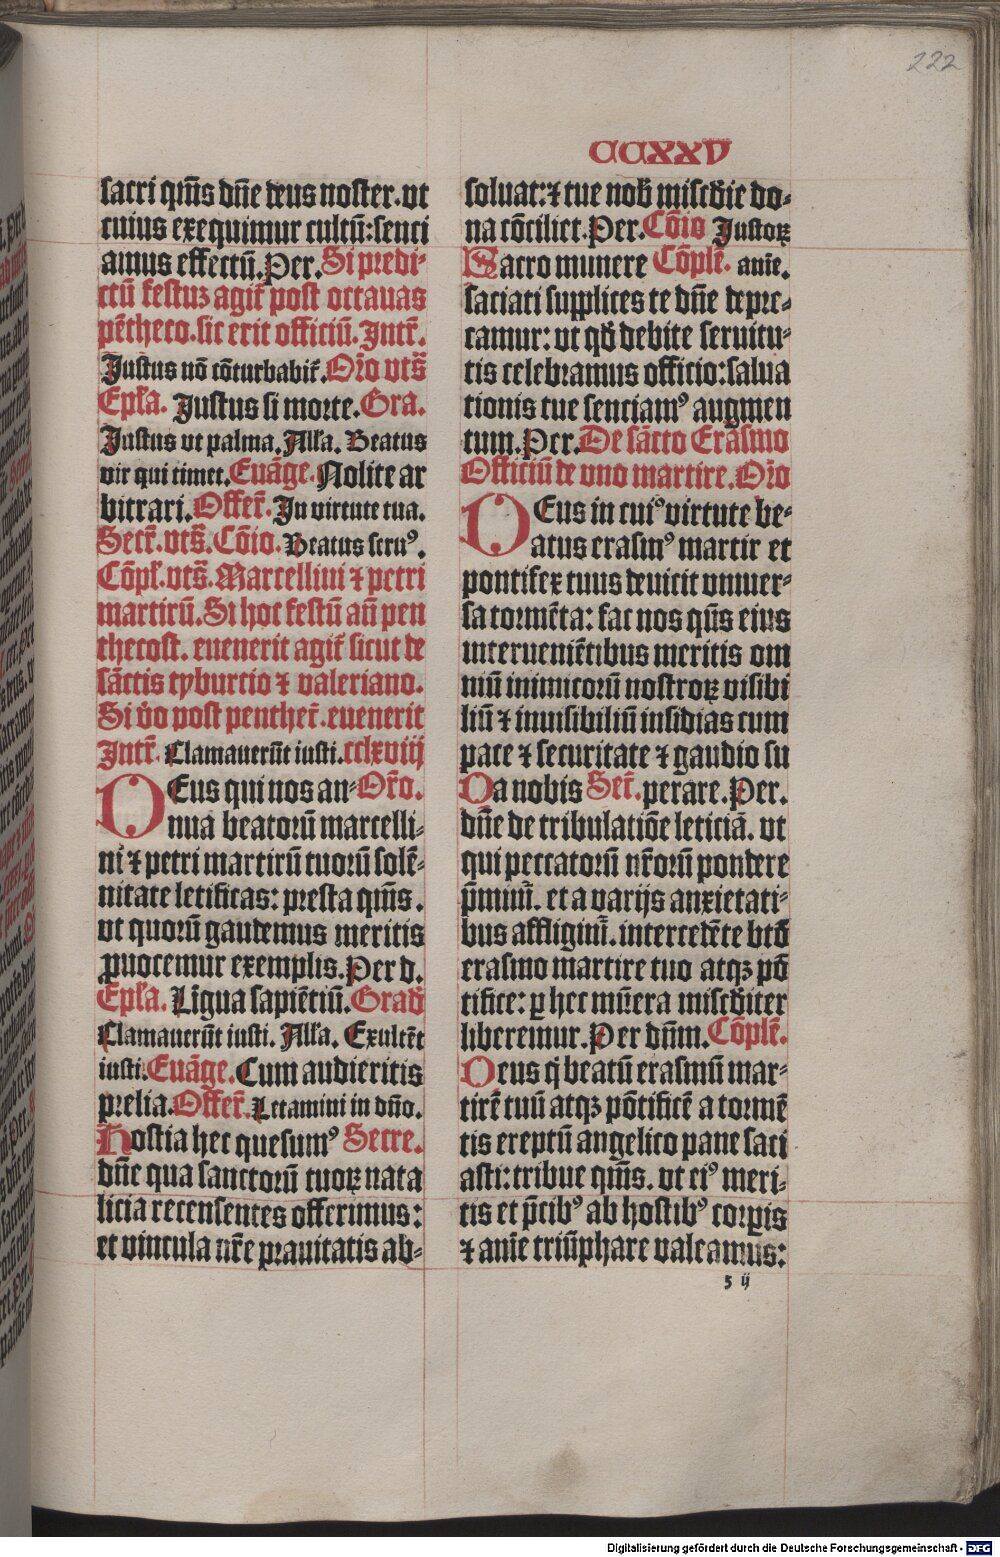 222
CCXXV
sacri qm̄s dn̄e deus noster. vt
cuius exequimur cultū: senci
amus effectū. Per. Si predi-
ctū festuz agit̄ post octauas
pētheco. sic erit officiū. Intr̄.
Justus nō cōturbabit̄. Or̄o vts̄
Ep̄la. Justus si morte. Gra.
Justus vt palma. All'a. Beatus
vir qui timet. Euāge. Nolite ar
bitrari. Offer̄. In virtute tua.
Secr̄. vts̄. Cōio. Beatus seruꝰ.
Cōpl'. vts̄. Marcellini ⁊ petri
martirū. Si hoc festū an̄ pen
thecost. euenerit agit̄ sicut de
sāctis tyburcio ⁊ valeriano.
Si v̄o post penthec̄. euenerit
Intr̄. Clamauerūt iusti. cclxviij
DEus qui nos an- Or̄o.
nua beatorū marcelli-
ni ⁊ petri martirū tuorū solē-
nitate letificas: presta qm̄s.
vt quorū gaudemus meritis
ꝓuocemur exemplis. Per d.
Ep̄la. Līgua sapiētiū. Grad̄
Clamauerūt iusti. All'a. Exultēt
iusti. Euāge. Cum audieritis
prelia. Offer̄. Letamini in dn̄o.
Hostia hec quesumꝰ Secre.
dn̄e qua sanctorū tuoꝝ nata
licia recensentes offerimus:
et vincula nr̄e prauitatis ab-
soluat: ⁊ tue nob̄ misc̄die do-
na cōciliet. Per. Cōio Justoꝝ
Sacro munere Cōple. anīe.
saciati supplices te dn̄e depre-
camur: vt qd̄ debite seruitu-
tis celebramus officio: salua
tionis tue senciamꝰ augmen
tum. Per. De sācto Erasmo
Officiū de vno martire. Or̄o
DEus in cuiꝰ virtute be-
atus erasmꝰ martir et
pontifex tuus deuicit vniuer-
sa tormēta: fac nos qs̄ eius
interueniētibus meritis om
niū inimicorū nostroꝝ visibi
liū ⁊ inuisibiliū insidias cum
pace ⁊ securitate ⁊ gaudio su
Da nobis Sec̄. perare. Per.
dn̄e de tribulatiōe leticiā. vt
qui peccatorū nr̄orū pondere
p̄mimur̄. et a varijs anxietati-
bus affligimur̄. intercedēte btō
erasmo martire tuo atqꝫ pō
tifice: ꝑ hec mūera misc̄diter
liberemur. Per dn̄m. Cōple.
Deus q̄ beatū erasmū mar-
tirē tuū atqꝫ pōtificē a tormē
tis ereptū angelico pane saci
asti: tribue qm̄s. vt eiꝰ meri-
tis et p̄cibꝰ ab hostibꝰ corꝑis
⁊ anīe triūphare valeamus:
5 ij
Digitalisierung gefördert durch die Deutsche Forschungsgemeinschaft - DFG